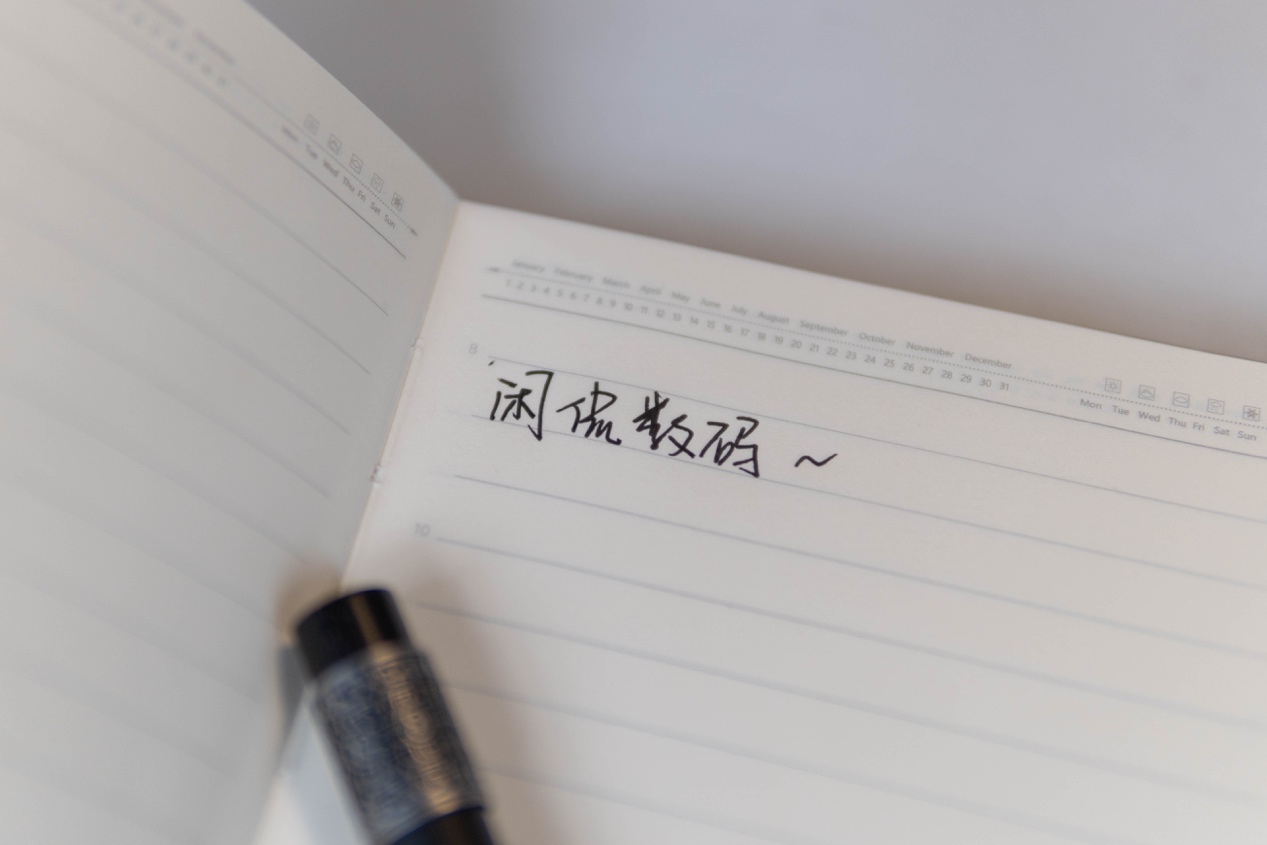 Mon Tue Wed Thu Fri Sat Sun
January February March April May June July August September October November December
1 2 3 4 5 6 7 8 9 10 11 12 13 14 15 16 17 18 19 20 21 22 23 24 25 26 27 28 29 30 31
Mon Tue Wed Thu Fri Sat Sun
8
闲侃数码~
10